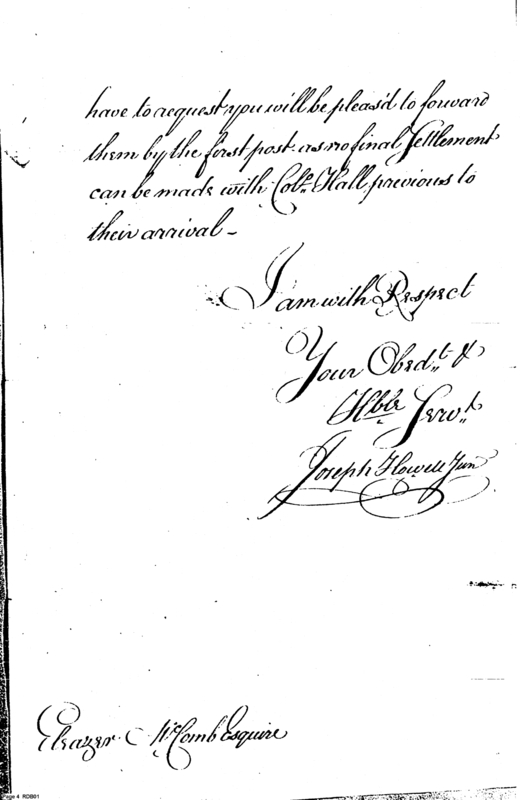 have to request you will be pleas'd to forward
them by the first post as no final Settlement
can be made with Colo. Hall previous to
their arrival –
I am with Respect
Your Obedt. &
Hble Servt.
Joseph Howell Jun
Eleazer McComb Esquire
Page 4 RDB01